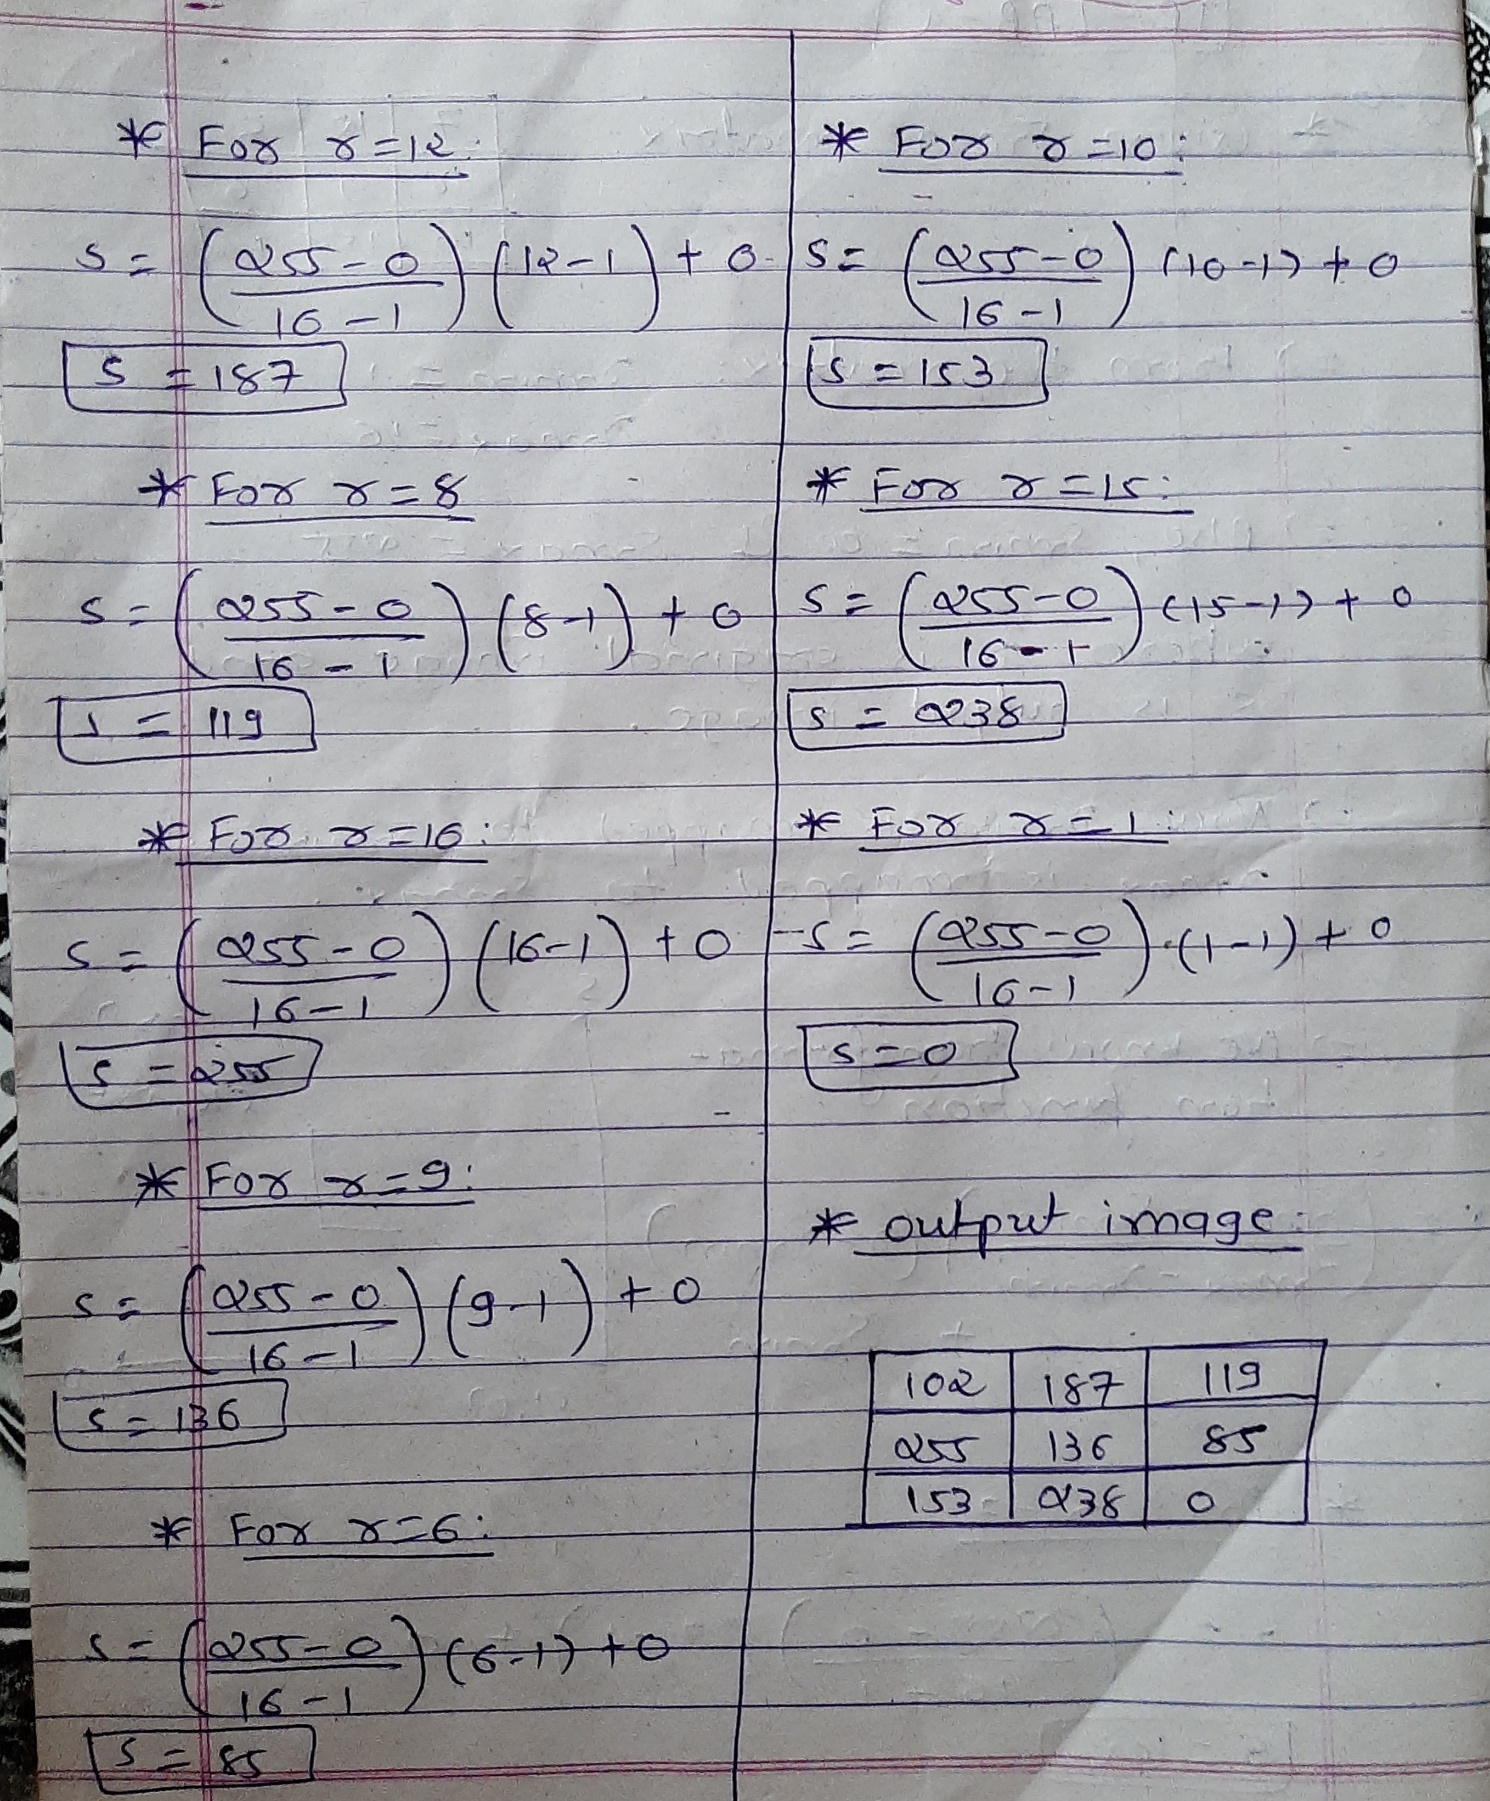 * For r=12:
s = ((255-0)/(16-1)) (12-1) + 0
s = 187
* For r=8
s = ((255-0)/(16-1)) (8-1) + 0
s = 119
* For r=16:
s = ((255-0)/(16-1)) (16-1) + 0
s = 255
* For r=9:
s = ((255-0)/(16-1)) (9-1) + 0
s = 136
* For r=6:
s = ((255-0)/(16-1)) (6-1) + 0
s = 85
* For r=10:
s = ((255-0)/(16-1)) (10-1) + 0
s = 153
* For r=15:
s = ((255-0)/(16-1)) (15-1) + 0
s = 238
* For r=1:
s = ((255-0)/(16-1)) (1-1) + 0
s=0
* output image:
102 187 119
255 136 85
153 238 0